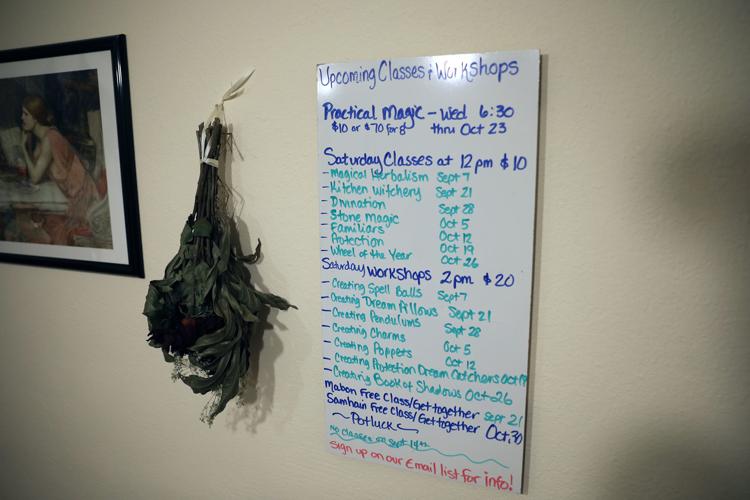 Upcoming Classes & Workshops
Practical Magic - Wed 6:30
$10 or $70 for 8 thru Oct 23
Saturday Classes at 12pm $10
- Magical Herbalism Sept 7
- Kitchen Witchery Sept 21
- Divination Sept 28
- Stone Magic Oct 5
- Familiars Oct 12
- Protection Oct 19
- Wheel of the Year Oct 26
Saturday Workshops 2pm $20
- Creating Spell Balls Sept 7
- Creating Dream Pillows Sept 21
- Creating Pendulums Sept 28
- Creating Charms Oct 5
- Creating Poppets Oct 12
- Creating Protection Dream Catchers Oct 19
- Creating Book of Shadows Oct 26
Mabon Free Class/Get together Sept 21
Samhain Free Class/Get together Oct, 30
~ Potluck ~
No classes on Sept 14th
Sign up on our Email list for info!